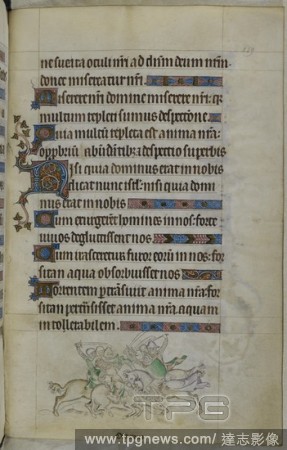 ne suenta oculi nr̄i ad dn̄um deum nr̄m:
donec misereatur nr̄i
Miserere nr̄i domine miserere nr̄i: q;
multum repleti sumus despectōne
Quia multū repleta est anima nr̄a:
opprobriū abūdātib; ⁊ despectio superbis
Nisi quia dominus erat in nobis
dicat nunc isrl̄: nisi quia domi
nus erat in nobis
Cum exurgerent homines in nos: forte
uiuos deglutissent nos
Cum irasceretur furor eorū in nos: for
sitan aqua obsorbuisset nos
Torrentem ptransiuit anima nr̄a: for
sitan ptransisset anima nr̄a aquam
intollerabilem
TPG
www.tpgnews.com / 達志影像